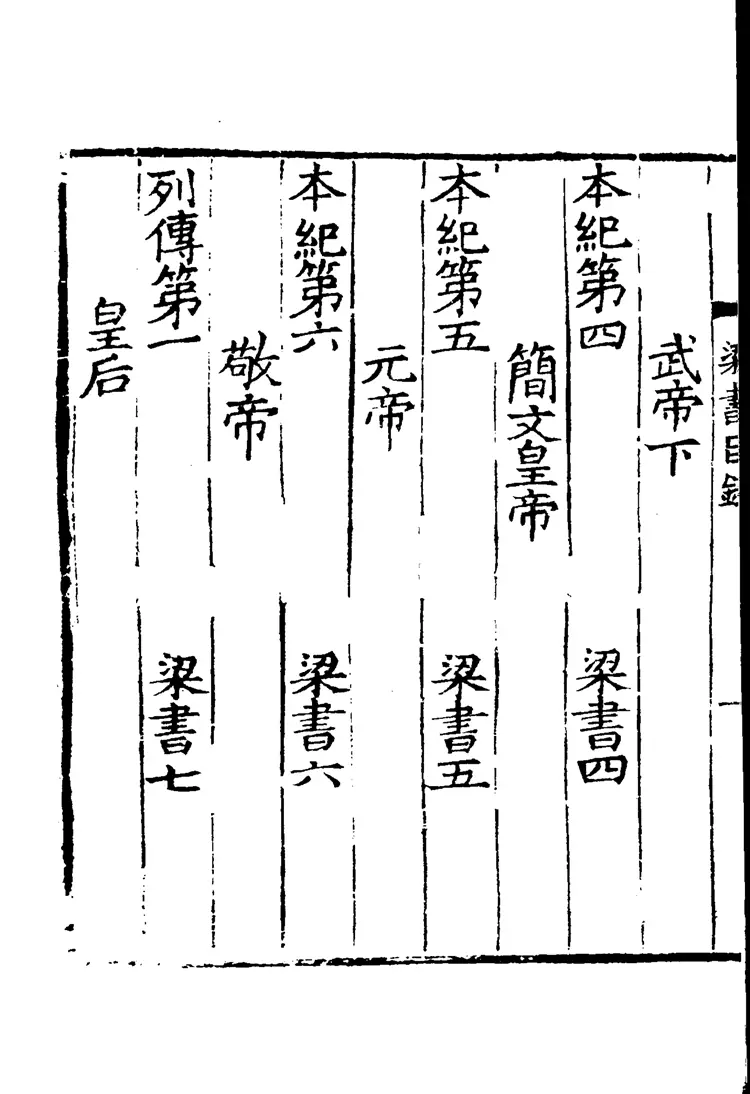 梁書目錄
一
武帝下
本紀第四
梁書四
簡文皇帝
本紀第五
梁書五
元帝
本紀第六
梁書六
敬帝
列傳第一
梁書七
皇后